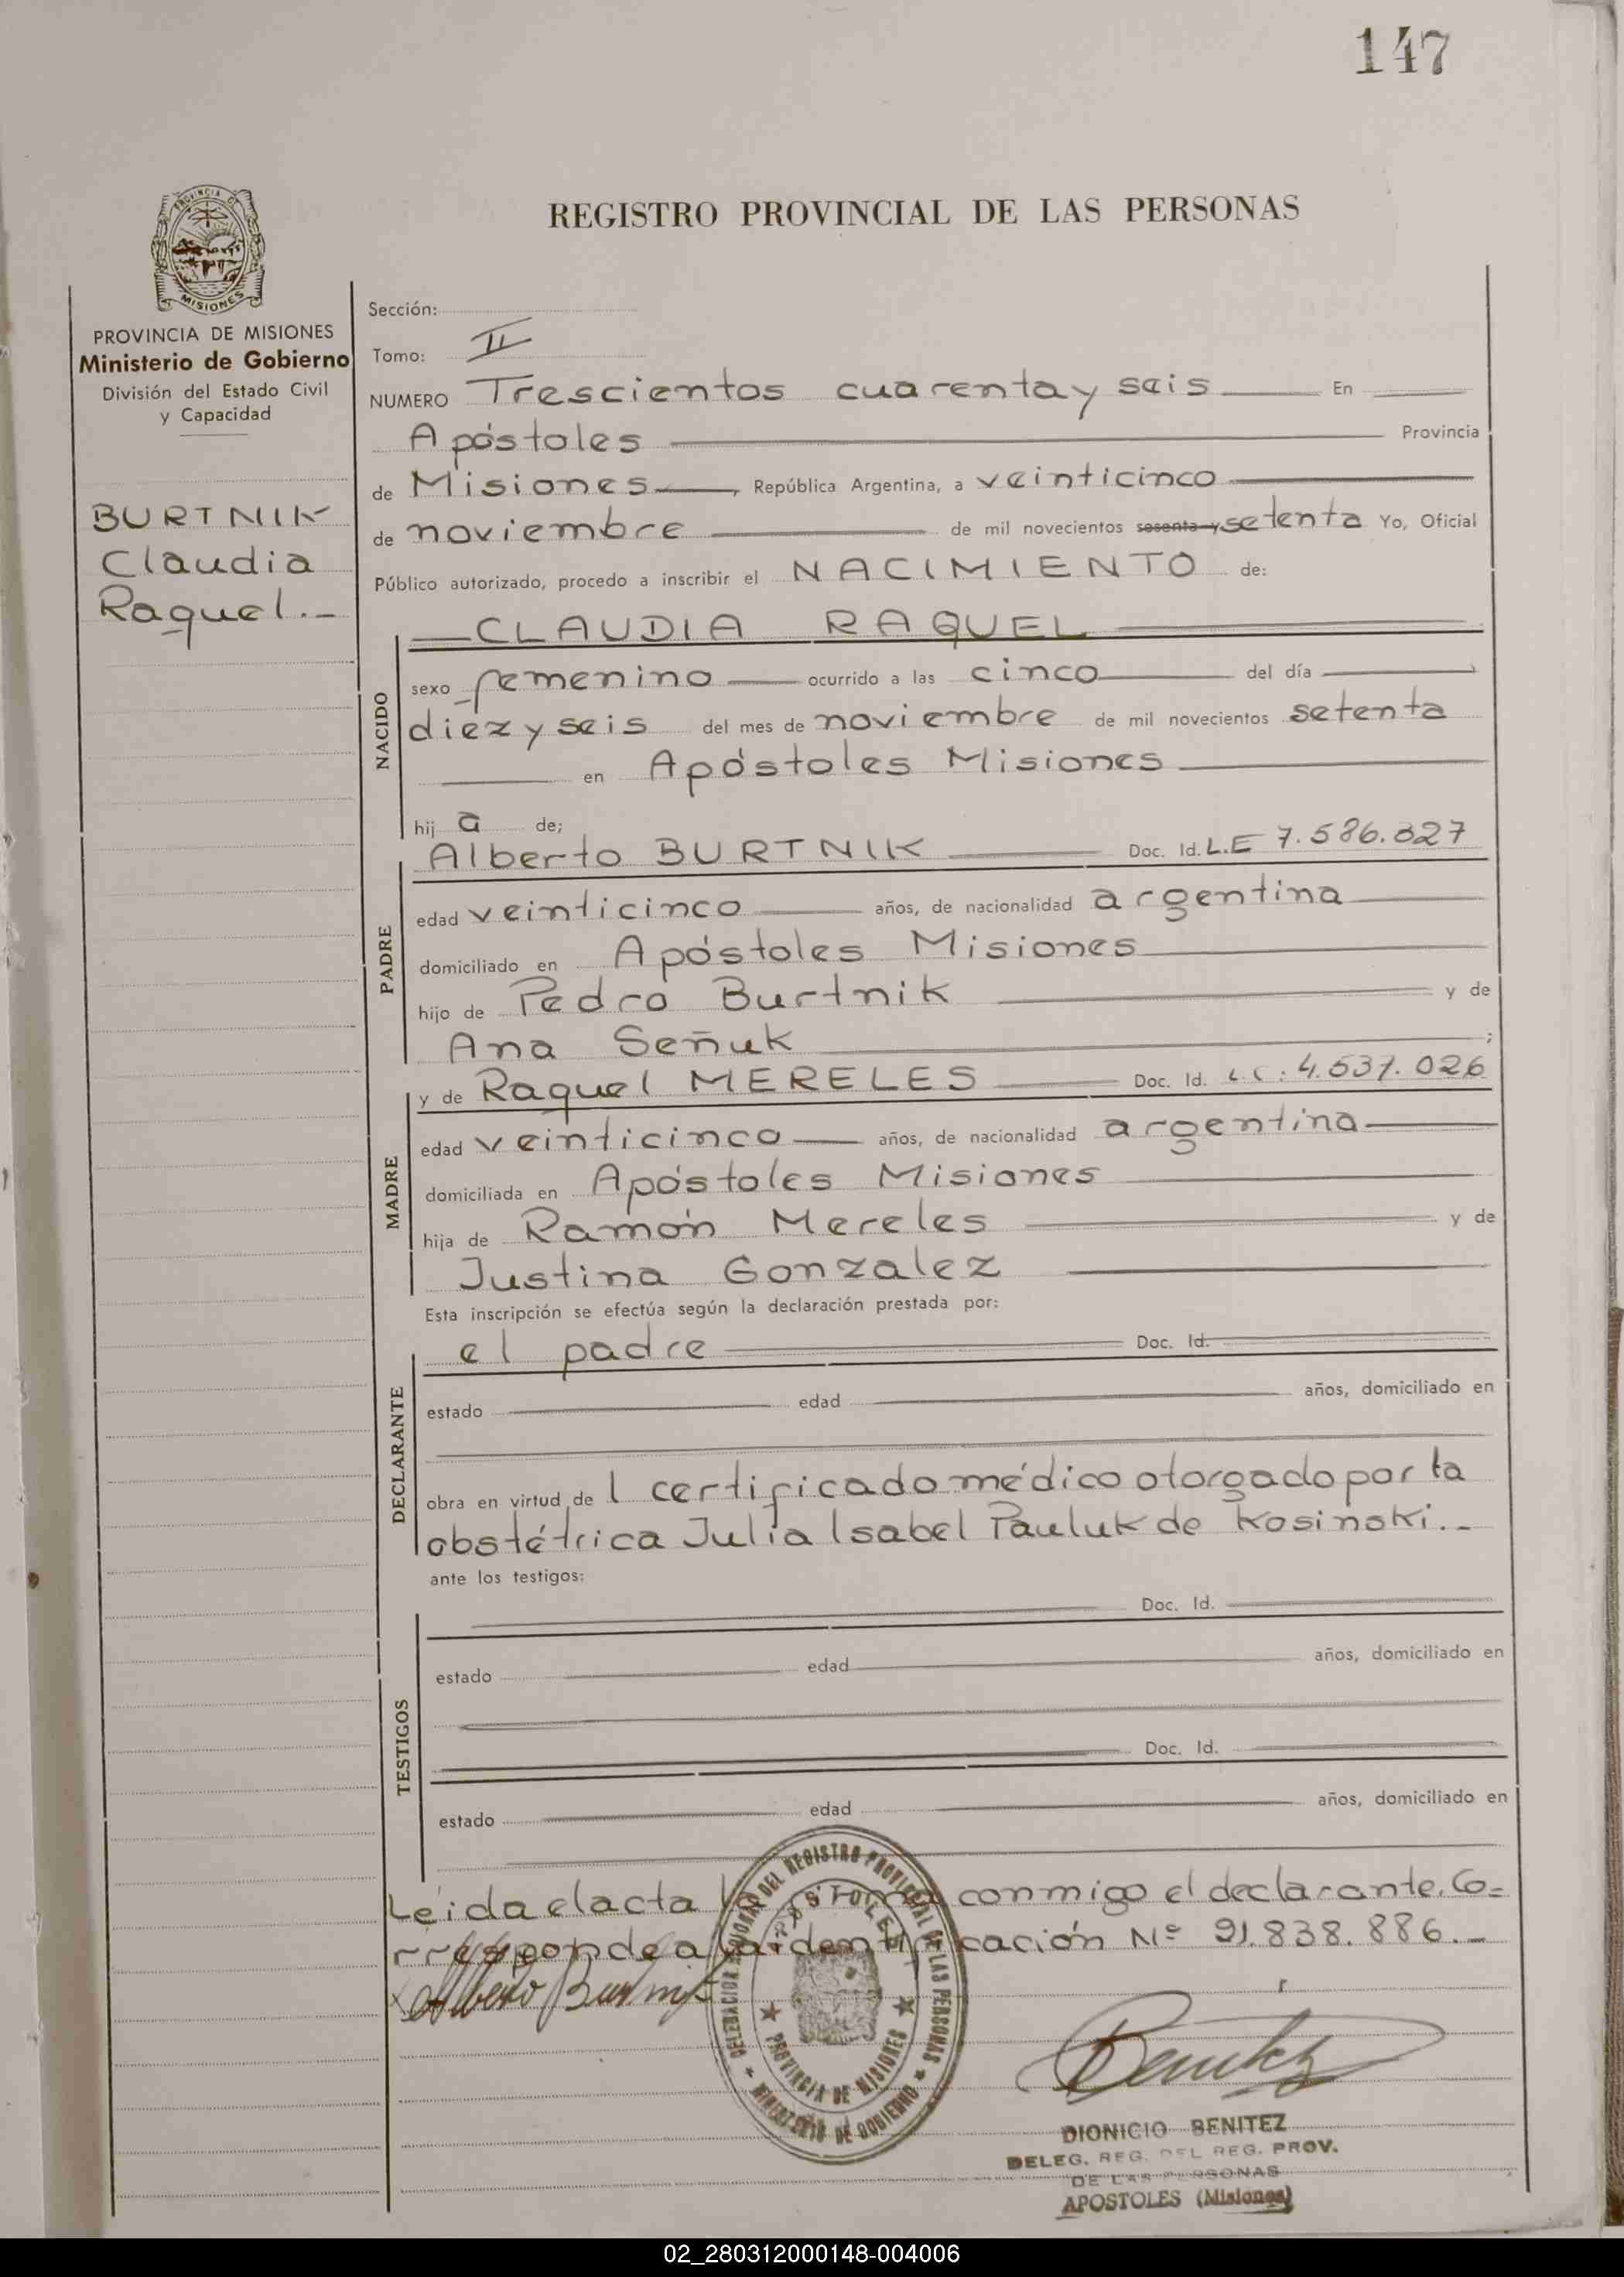 147
PROVINCIA DE
MISIONES
REGISTRO PROVINCIAL DE LAS PERSONAS
PROVINCIA DE MISIONES
Ministerio de Gobierno
División del Estado Civil
y Capacidad
BURTNIK
Claudia
Raquel.-
Sección:
Tomo: II
NUMERO Trescientos cuarenta y seis En
Apóstoles Provincia
de Misiones, República Argentina, a veinticinco
de noviembre de mil novecientos sesenta y setenta Yo, Oficial
Público autorizado, procedo a inscribir el NACIMIENTO de:
CLAUDIA RAQUEL
NACIDO
sexo femenino ocurrido a las cinco del día
diez y seis del mes de noviembre de mil novecientos setenta
en Apóstoles Misiones
hija de;
PADRE
Alberto BURTNIK Doc. Id. L.E 7.586.827
edad veinticinco años, de nacionalidad argentina
domiciliado en Apóstoles Misiones
hijo de Pedro Burtnik y de
Ana Señuk ;
MADRE
y de Raquel MERELES Doc. Id. L.C: 4.637.026
edad veinticinco años, de nacionalidad argentina
domiciliada en Apóstoles Misiones
hija de Ramón Mereles y de
Justina Gonzalez
Esta inscripción se efectúa según la declaración prestada por:
DECLARANTE
el padre Doc. Id.
estado edad años, domiciliado en
obra en virtud de l certificado médico otorgado por la
obstétrica Julia Isabel Pauluk de Kosinski.-
ante los testigos:
TESTIGOS
Doc. Id.
estado edad años, domiciliado en
Doc. Id.
estado edad años, domiciliado en
Leida el acta firma conmigo el declarante. Co-
rresponde a la identificación Nº 21.838.886.-
Alberto Burtnik
DELEGACION REGIONAL DEL REGISTRO PROVINCIAL DE LAS PERSONAS
APOSTOLES
PROVINCIA DE MISIONES
MINISTERIO DE GOBIERNO
Benitez
DIONICIO BENITEZ
DELEG. REG. DEL REG. PROV.
DE LAS PERSONAS
APOSTOLES (Misiones)
02_280312000148-004006